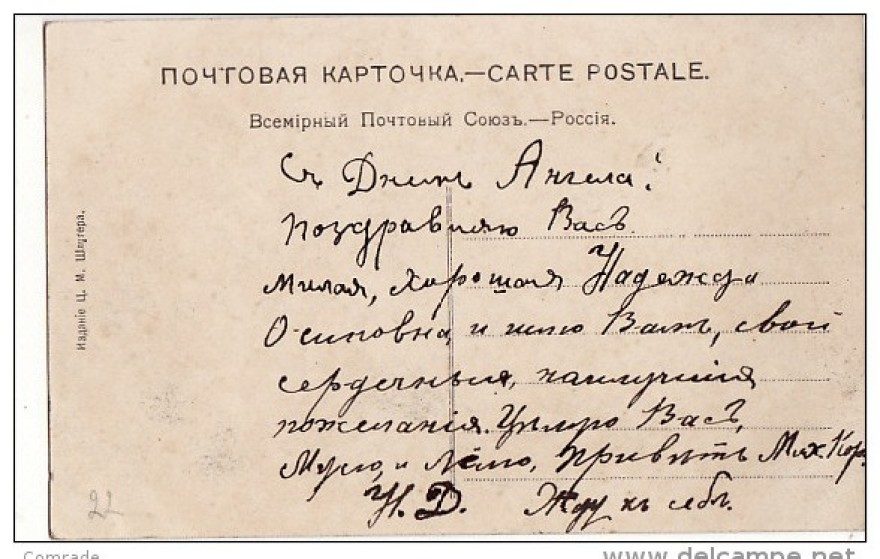 ПОЧТОВАЯ КАРТОЧКА.—CARTE POSTALE.
Всемірный Почтовый Союзъ.—Россія.
Изданіе Ц. М. Шлугера.
Съ Днемъ Ангела!
поздравляю Васъ
милая, хорошая Надежда
Осиповна, и шлю Вамъ, свои
сердечныя, наилучшія
пожеланія. Цѣлую Васъ,
Мусю, и Лёлю, Привѣтъ Мих. Кор.
Н. Д. Жду къ себѣ.
22
Comrade
www.delcampe.net